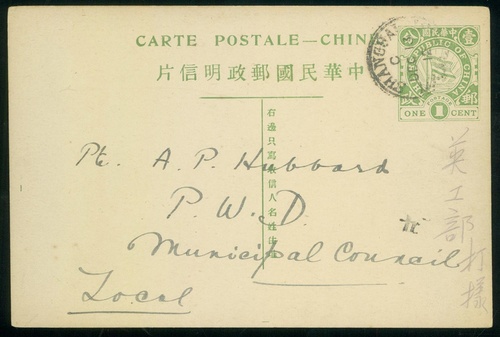 CARTE POSTALE—CHINE
片信明政郵國民華中
右邊只寫收信人名姓住址
中華民國
REPUBLIC OF CHINA
壹 分
郵 政
ONE 1 CENT
SHANGHAI
Pte. A. P. Hubbard
P. W. D.
Municipal Council
Local
英工部
打樣